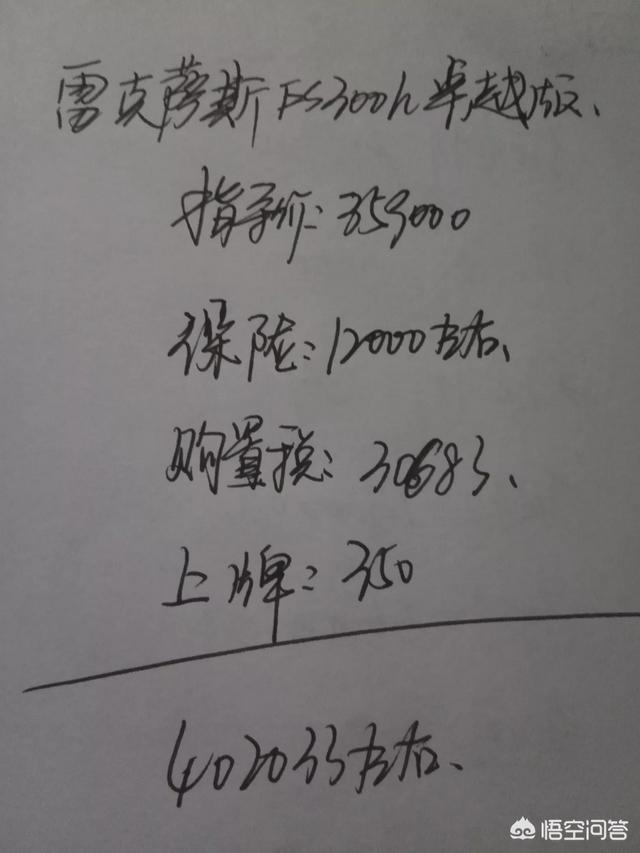 雷克萨斯ES300h卓越版、
指导价：359000
保险：12000左右、
购置税：30683、
上牌：350
402033左右、
悟空问答